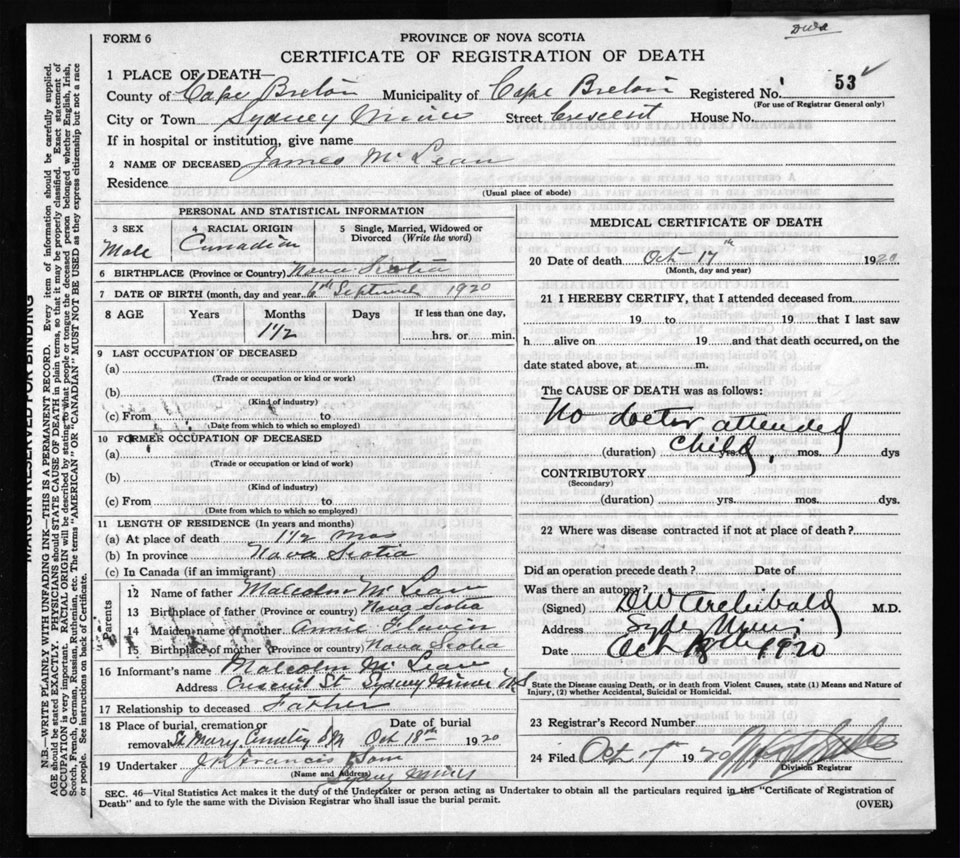 Dwa
FORM 6
PROVINCE OF NOVA SCOTIA
CERTIFICATE OF REGISTRATION OF DEATH
1 PLACE OF DEATH—
County of Cape Breton Municipality of Cape Breton Registered No. 53
(For use of Registrar General only)
City or Town Sydney Mines Street Crescent House No.
If in hospital or institution, give name
2 NAME OF DECEASED James McLean
Residence
(Usual place of abode)
PERSONAL AND STATISTICAL INFORMATION
3 SEX Male
4 RACIAL ORIGIN Canadian
5 Single, Married, Widowed or Divorced (Write the word)
6 BIRTHPLACE (Province or Country) Nova Scotia
7 DATE OF BIRTH (month, day and year 6th September 1920
8 AGE Years Months Days If less than one day,
1 1/2 hrs. or min.
9 LAST OCCUPATION OF DECEASED
(a)
(Trade or occupation or kind or work)
(b)
(Kind of industry)
(c) From to
(Date from which to which so employed)
10 FORMER OCCUPATION OF DECEASED
(a)
(Trade or occupation or kind of work)
(b)
(Kind of industry)
(c) From to
(Date from which to which so employed)
11 LENGTH OF RESIDENCE (In years and months)
(a) At place of death 1 1/2 mos
(b) In province Nova Scotia
(c) In Canada (if an immigrant)
Parents
12 Name of father Malcolm McLean
13 Birthplace of father (Province or country) Nova Scotia
14 Maiden name of mother Annie Flavin
15 Birthplace of mother (Province or country) Nova Scotia
16 Informant's name Malcolm McLean
Address Crescent St Sydney Mines NS
17 Relationship to deceased Father
18 Place of burial, cremation or removal St Mary Cemetey SM
Date of burial Oct 18th 1920
19 Undertaker J R Francis & Son
(Name and Address) Sydney Mines
MEDICAL CERTIFICATE OF DEATH
20 Date of death Oct 17th 1920
(Month, day and year)
21 I HEREBY CERTIFY, that I attended deceased from
19 to 19 that I last saw
h alive on 19 and that death occurred, on the
date stated above, at m.
The CAUSE OF DEATH was as follows:
No doctor attended
child,
(duration) yrs. mos. dys
CONTRIBUTORY
(Secondary)
(duration) yrs. mos. dys.
22 Where was disease contracted if not at place of death?
Did an operation precede death? Date of
Was there an autopsy?
(Signed) DW Archibald M.D.
Address Syde Mines
Date Oct 18th 1920
State the Disease causing Death, or in death from Violent Causes, state (1) Means and Nature of
Injury, (2) whether Accidental, Suicidal or Homicidal.
23 Registrar's Record Number
24 Filed Oct 1920
Division Registrar
SEC. 46—Vital Statistics Act makes it the duty of the Undertaker or person acting as Undertaker to obtain all the particulars required in the "Certificate of Registration of
Death" and to fyle the same with the Division Registrar who shall issue the burial permit.
(OVER)
MARGIN RESERVED FOR BINDING
N.B.—WRITE PLAINLY WITH UNFADING INK—THIS IS A PERMANENT RECORD. Every item of information should be carefully supplied.
AGE should be stated EXACTLY. PHYSICIANS should STATE CAUSE OF DEATH in plain terms, so that it may be properly classified. Exact statement of
OCCUPATION is very important. RACIAL ORIGIN will be described by stating to what people or tongue the deceased person belonged whether English, Irish,
Scotch, French, German, Russian, Ruthenian, etc. The terms "AMERICAN" OR "CANADIAN" MUST NOT BE USED as they express citizenship but not a race
or people. See instructions on back of Certificate.